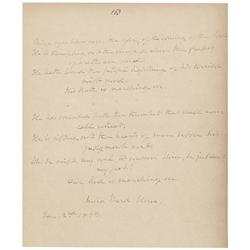 Mine eyes have seen the glory of the coming of the Lord
He is trampling out the vineyard where the grapes
of wrath are stored.
He hath loosed the fateful lightning of his terrible
swift sword.
His truth is marching on.
He has sounded forth the trumpet that shall never
call retreat;
He is sifting out the hearts of men before his
judgment seat:
Oh! be swift my soul to answer Him, be jubilant
my feet!
Our God is marching on.
Julia Ward Howe.